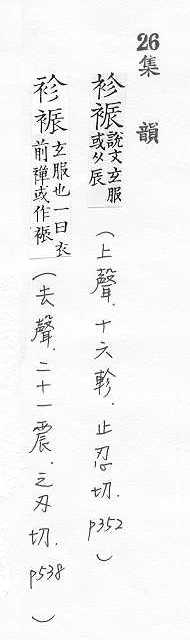 26集韻
袗裖說文玄服
或从辰
(上聲.十六軫.止忍切.p352)
袗裖玄服也一曰衣
前襌或作裖
(去聲.二十一震.之刃切.p538)